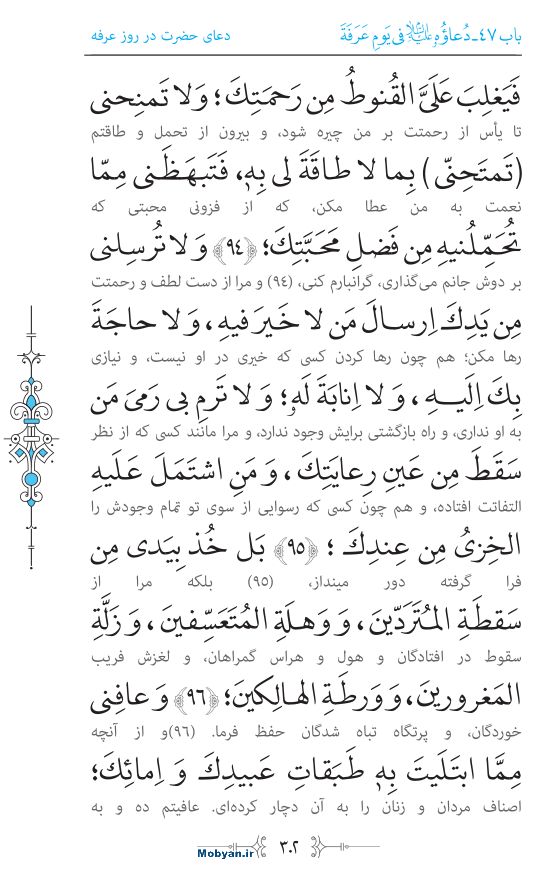 باب ۴۷ـ دُعاؤُهُ فی یَومِ عَرَفَةَ
دعای حضرت در روز عرفه
فَیَغلِبَ عَلَیَّ القُنوطُ مِن رَحمَتِكَ؛ وَ لا تَمنِحنی
تا یأس از رحمتت بر من چیره شود، و بیرون از تحمل و طاقتم
(تَمتَحِنّی) بِما لا طاقَةَ لی بِهِ، فَتَبهَظَنی مِمّا
نعمت به من عطا مکن، که از فزونی محبتی که
تُحَمِّلُنیهِ مِن فَضلِ مَحَبَّتِكَ؛ ﴿۹۴﴾ وَ لا تُرسِلنی
بر دوش جانم می‌گذاری، گرانبارم کنی، (۹۴) و مرا از دست لطف و رحمتت
مِن یَدِكَ اِرسالَ مَن لا خَیرَ فیهِ، وَ لا حاجَةَ
رها مکن؛ هم چون رها کردن کسی که خیری در او نیست، و نیازی
بِكَ اِلَیهِ، وَ لا اِنابَةَ لَهُ؛ وَ لا تَرمِ بی رَمیَ مَن
به او نداری، و راه بازگشتی برایش وجود ندارد، و مرا مانند کسی که از نظر
سَقَطَ مِن عَینِ رِعایَتِكَ، وَ مَنِ اشتَمَلَ عَلَیهِ
التفاتت افتاده، و هم چون کسی که رسوایی از سوی تو تمام وجودش را
الخِزیُ مِن عِندِكَ؛ ﴿۹۵﴾ بَل خُذ بِیَدی مِن
فرا گرفته دور مینداز، (۹۵) بلکه مرا از
سَقطَةِ المُتَرَدّینَ، وَ وَهلَةِ المُتَعَسِّفینَ، وَ زَلَّةِ
سقوط در افتادگان و هول و هراس گمراهان، و لغزش فریب
المَغرورینَ، وَ وَرطَةِ الهالِکینَ؛ ﴿۹۶﴾ وَ عافِنی
خوردگان، و پرتگاه تباه شدگان حفظ فرما. (۹۶)و از آنچه
مِمَّا ابتَلَیتَ بِهِ طَبَقاتِ عَبیدِكَ وَ اِمائِكَ؛
اصناف مردان و زنان را به آن دچار کرده‌ای. عافیتم ده و به
۳۰۲
Mobyan.ir